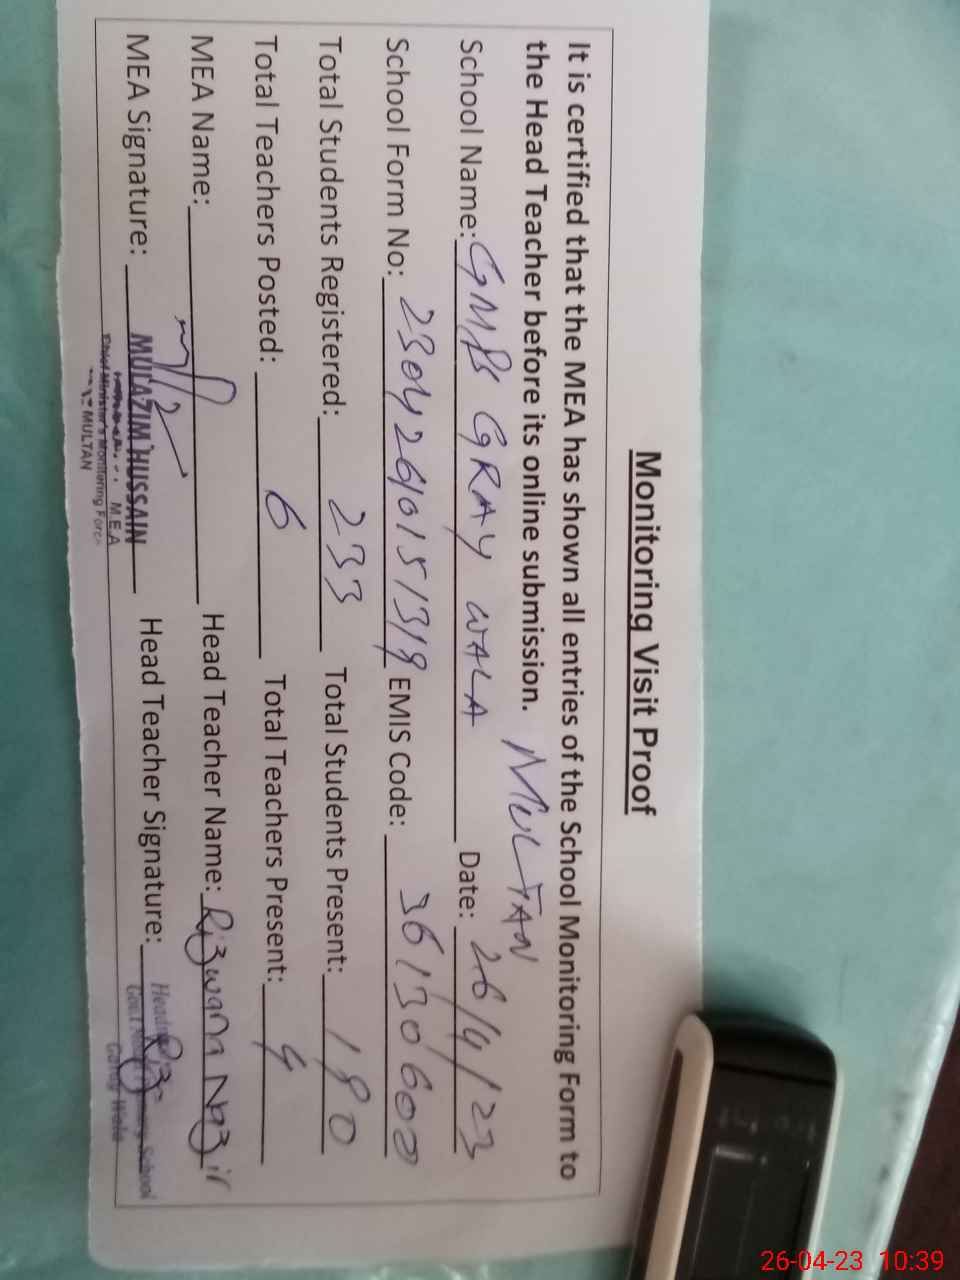 Monitoring Visit Proof
It is certified that the MEA has shown all entries of the School Monitoring Form to
the Head Teacher before its online submission. MULTAN
School Name: GMPS GRAY WALA Date: 26/4/23
School Form No: 23042640151319 EMIS Code: 36130600
Total Students Registered: 233 Total Students Present: 190
Total Teachers Posted: 6 Total Teachers Present: 4
MEA Name: Head Teacher Name: Rizwan Nazir
MEA Signature: MULAZIM HUSSAIN Head Teacher Signature:
M.E.A
Chief Minister's Monitoring Force
MULTAN
School
26-04-23 10:39